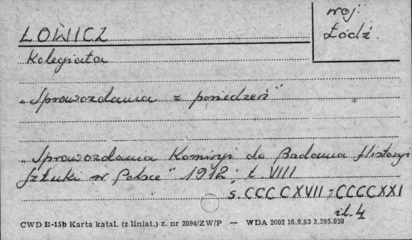 ŁOWICZ
woj.
Łódź.
Kolegiata
„Sprawozdania z posiedzeń”
„Sprawozdania Komisyi do Badania Historyi
Sztuki w Polsce” 1912, t. VIII
s. CCCCXVII-CCCCXXI
il. 4
CWD E-15b Karta katal. (z liniat.) z. nr 2094/ZW/P — WDA 2002 16.9.83 3.295.020